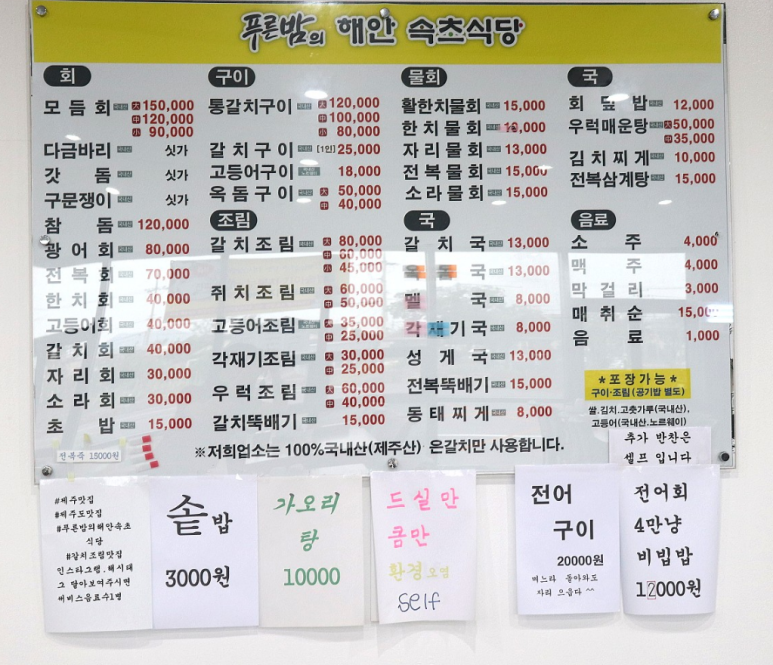 푸른밤의 해안 속초식당
회
모듬회 大150,000
中120,000
小 90,000
다금바리 싯가
갓돔 싯가
구문쟁이 싯가
참돔 120,000
광어회 80,000
전복회 70,000
한치회 40,000
고등어회 40,000
갈치회 40,000
자리회 30,000
소라회 30,000
초밥 15,000
전복죽 15000원
구이
통갈치구이 大120,000
中100,000
小 80,000
갈치구이 [1인]25,000
고등어구이 18,000
옥돔구이 大 50,000
中 40,000
조림
갈치조림 大 80,000
中 60,000
小 45,000
쥐치조림 大 60,000
中 50,000
고등어조림 大 35,000
中 25,000
각재기조림 大 30,000
中 25,000
우럭조림 大 60,000
中 40,000
갈치뚝배기 15,000
물회
활한치물회 15,000
한치물회
자리물회 13,000
전복물회 15,000
소라물회 15,000
국
갈치국 13,000
옥돔국 13,000
멜국 8,000
각재기국 8,000
성게국 13,000
전복뚝배기 15,000
동태찌게 8,000
국
회덮밥 12,000
우럭매운탕 大50,000
中35,000
김치찌게 10,000
전복삼계탕 15,000
음료
소주 4,000
맥주 4,000
막걸리 3,000
매취순 15,000
음료 1,000
★포장가능★
구이·조림(공기밥 별도)
쌀.김치.고춧가루(국내산),
고등어(국내산.노르웨이)
※저희업소는 100%국내산(제주산) 온갈치만 사용합니다.
추가 반찬은
셀프 입니다
#제주맛집
#제주도맛집
#푸른밤의해안속초
식당
#갈치조림맛집
인스타그램.해시태
그 달아보여주시면
서비스음료수1병
솥밥
3000원
가오리
탕
10000
드실만
큼만
환경오염
self
전어
구이
20000원
며느리 돌아와도
자리 으읍다 ^^
전어회
4만냥
비빔밥
12000원